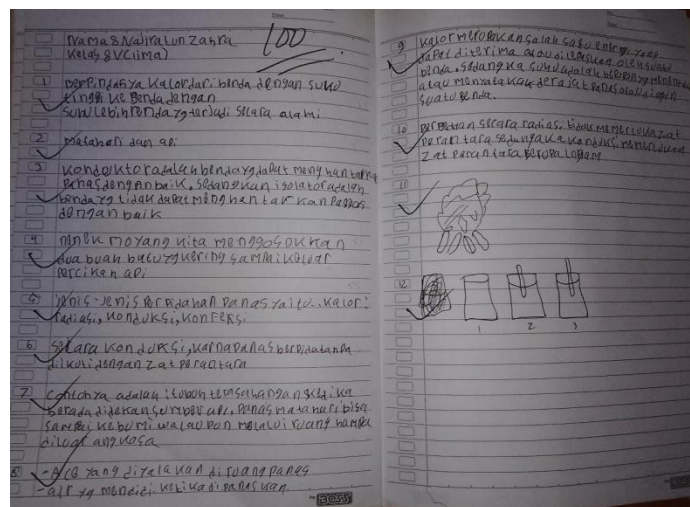 Nama : Najiratun Zahra
100
Kelas : V (lima)
1 berpindahya kalor dari benda dengan suhu
tinggi ke benda dengan
suhu lebih rendah yg terjadi secara alami
2 Matahari dan api
3 konduktor adalah benda yg dapat menghantarkan
panas dengan baik. sedangkan isolator adalah
benda yg tidak dapat menghantarkan panas
dengan baik
4 nenek moyang kita menggosokkan
dua buah batu yg kering sampai keluar
percikan api
5 Jenis-jenis perpidahan panas yaitu.. kalor :
radiasi, konduksi, konfeksi
6 secara konduksi, karna panas berpidah tanpa
diikuti dengan zat perantara
7 contohya adalah : tubuh terasa hangan ketika
berada didekan sumber api. panas matahari bisa
sampai kebumi walaupun melalui ruang hampa
diluar angkasa
8 - ACB yang diyalakan diruang panas
- air yg mendidi ketika di panaskan.
BOSS
9 kalor merupakan salah satu energi yang
dapat diterima atau dilepaskan oleh suatu
benda. sedangka suhu adalah
atau menyatakan derajat panas atau dingin
suatu benda.
10 secara radiasi tidak memerlukan zat
perantara sedangkan konduksi memerlukan
zat perantara berupa logam
11
12
1 2 3